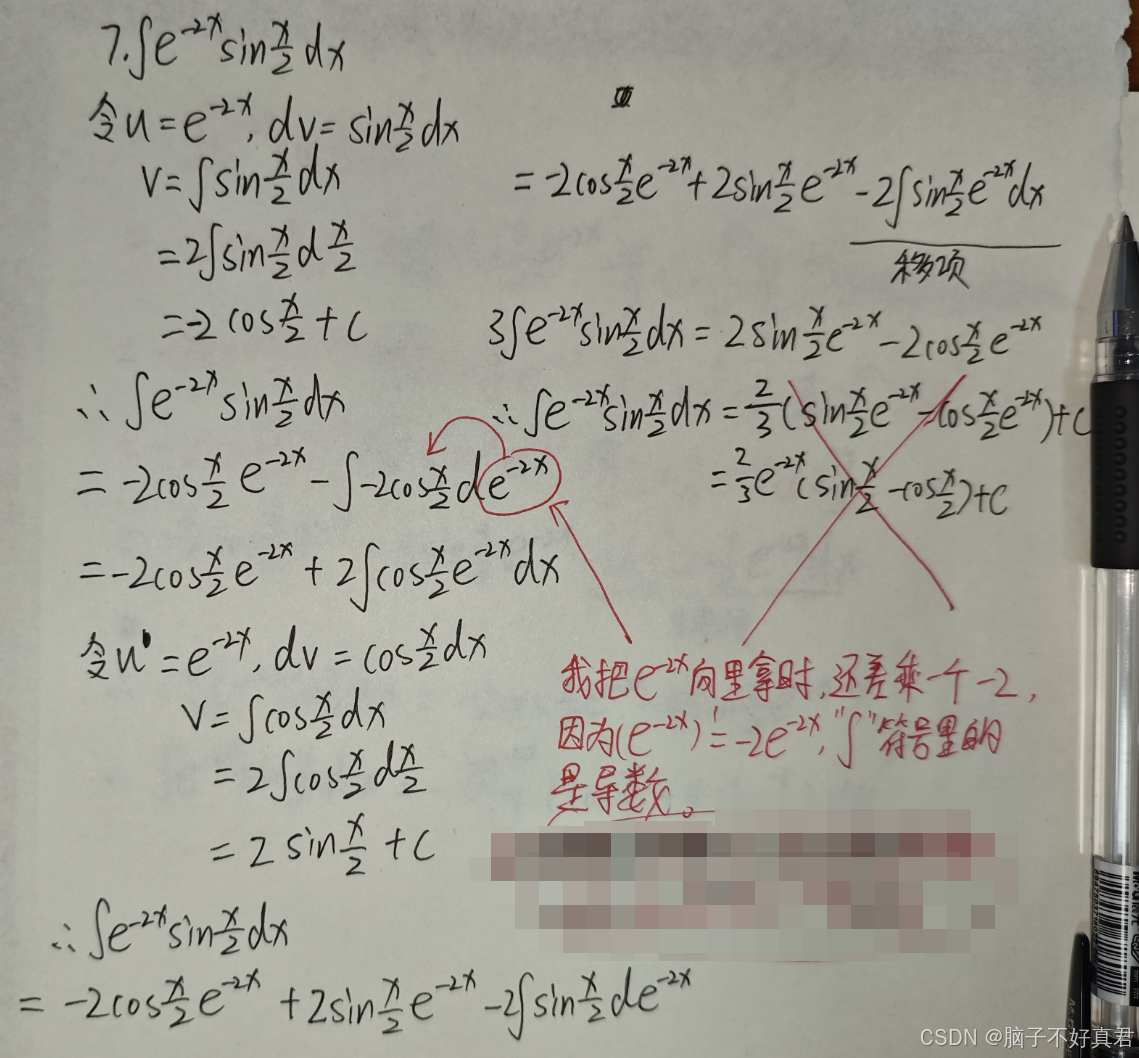 7. ∫e^{-2x} sin x/2 dx
令u = e^{-2x}, dv = sin x/2 dx
v = ∫sin x/2 dx
= 2∫sin x/2 d x/2
= -2 cos x/2 + C
∴ ∫e^{-2x} sin x/2 dx
= -2cos x/2 e^{-2x} - ∫-2cos x/2 de^{-2x}
= -2cos x/2 e^{-2x} + 2∫cos x/2 e^{-2x} dx
令u = e^{-2x}, dv = cos x/2 dx
v = ∫cos x/2 dx
= 2∫cos x/2 d x/2
= 2 sin x/2 + C
∴ ∫e^{-2x} sin x/2 dx
= -2cos x/2 e^{-2x} + 2sin x/2 e^{-2x} - 2∫sin x/2 de^{-2x}
= -2cos x/2 e^{-2x} + 2sin x/2 e^{-2x} - 2∫sin x/2 e^{-2x} dx
移项
3∫e^{-2x} sin x/2 dx = 2sin x/2 e^{-2x} - 2cos x/2 e^{-2x}
∴ ∫e^{-2x} sin x/2 dx = 2/3 (sin x/2 e^{-2x} - cos x/2 e^{-2x}) + C
= 2/3 e^{-2x} (sin x/2 - cos x/2) + C
我把e^{-2x}向里拿时,还差乘一个-2,
因为(e^{-2x})' = -2e^{-2x}, "∫"符号里的
是导数。
CSDN @脑子不好真君